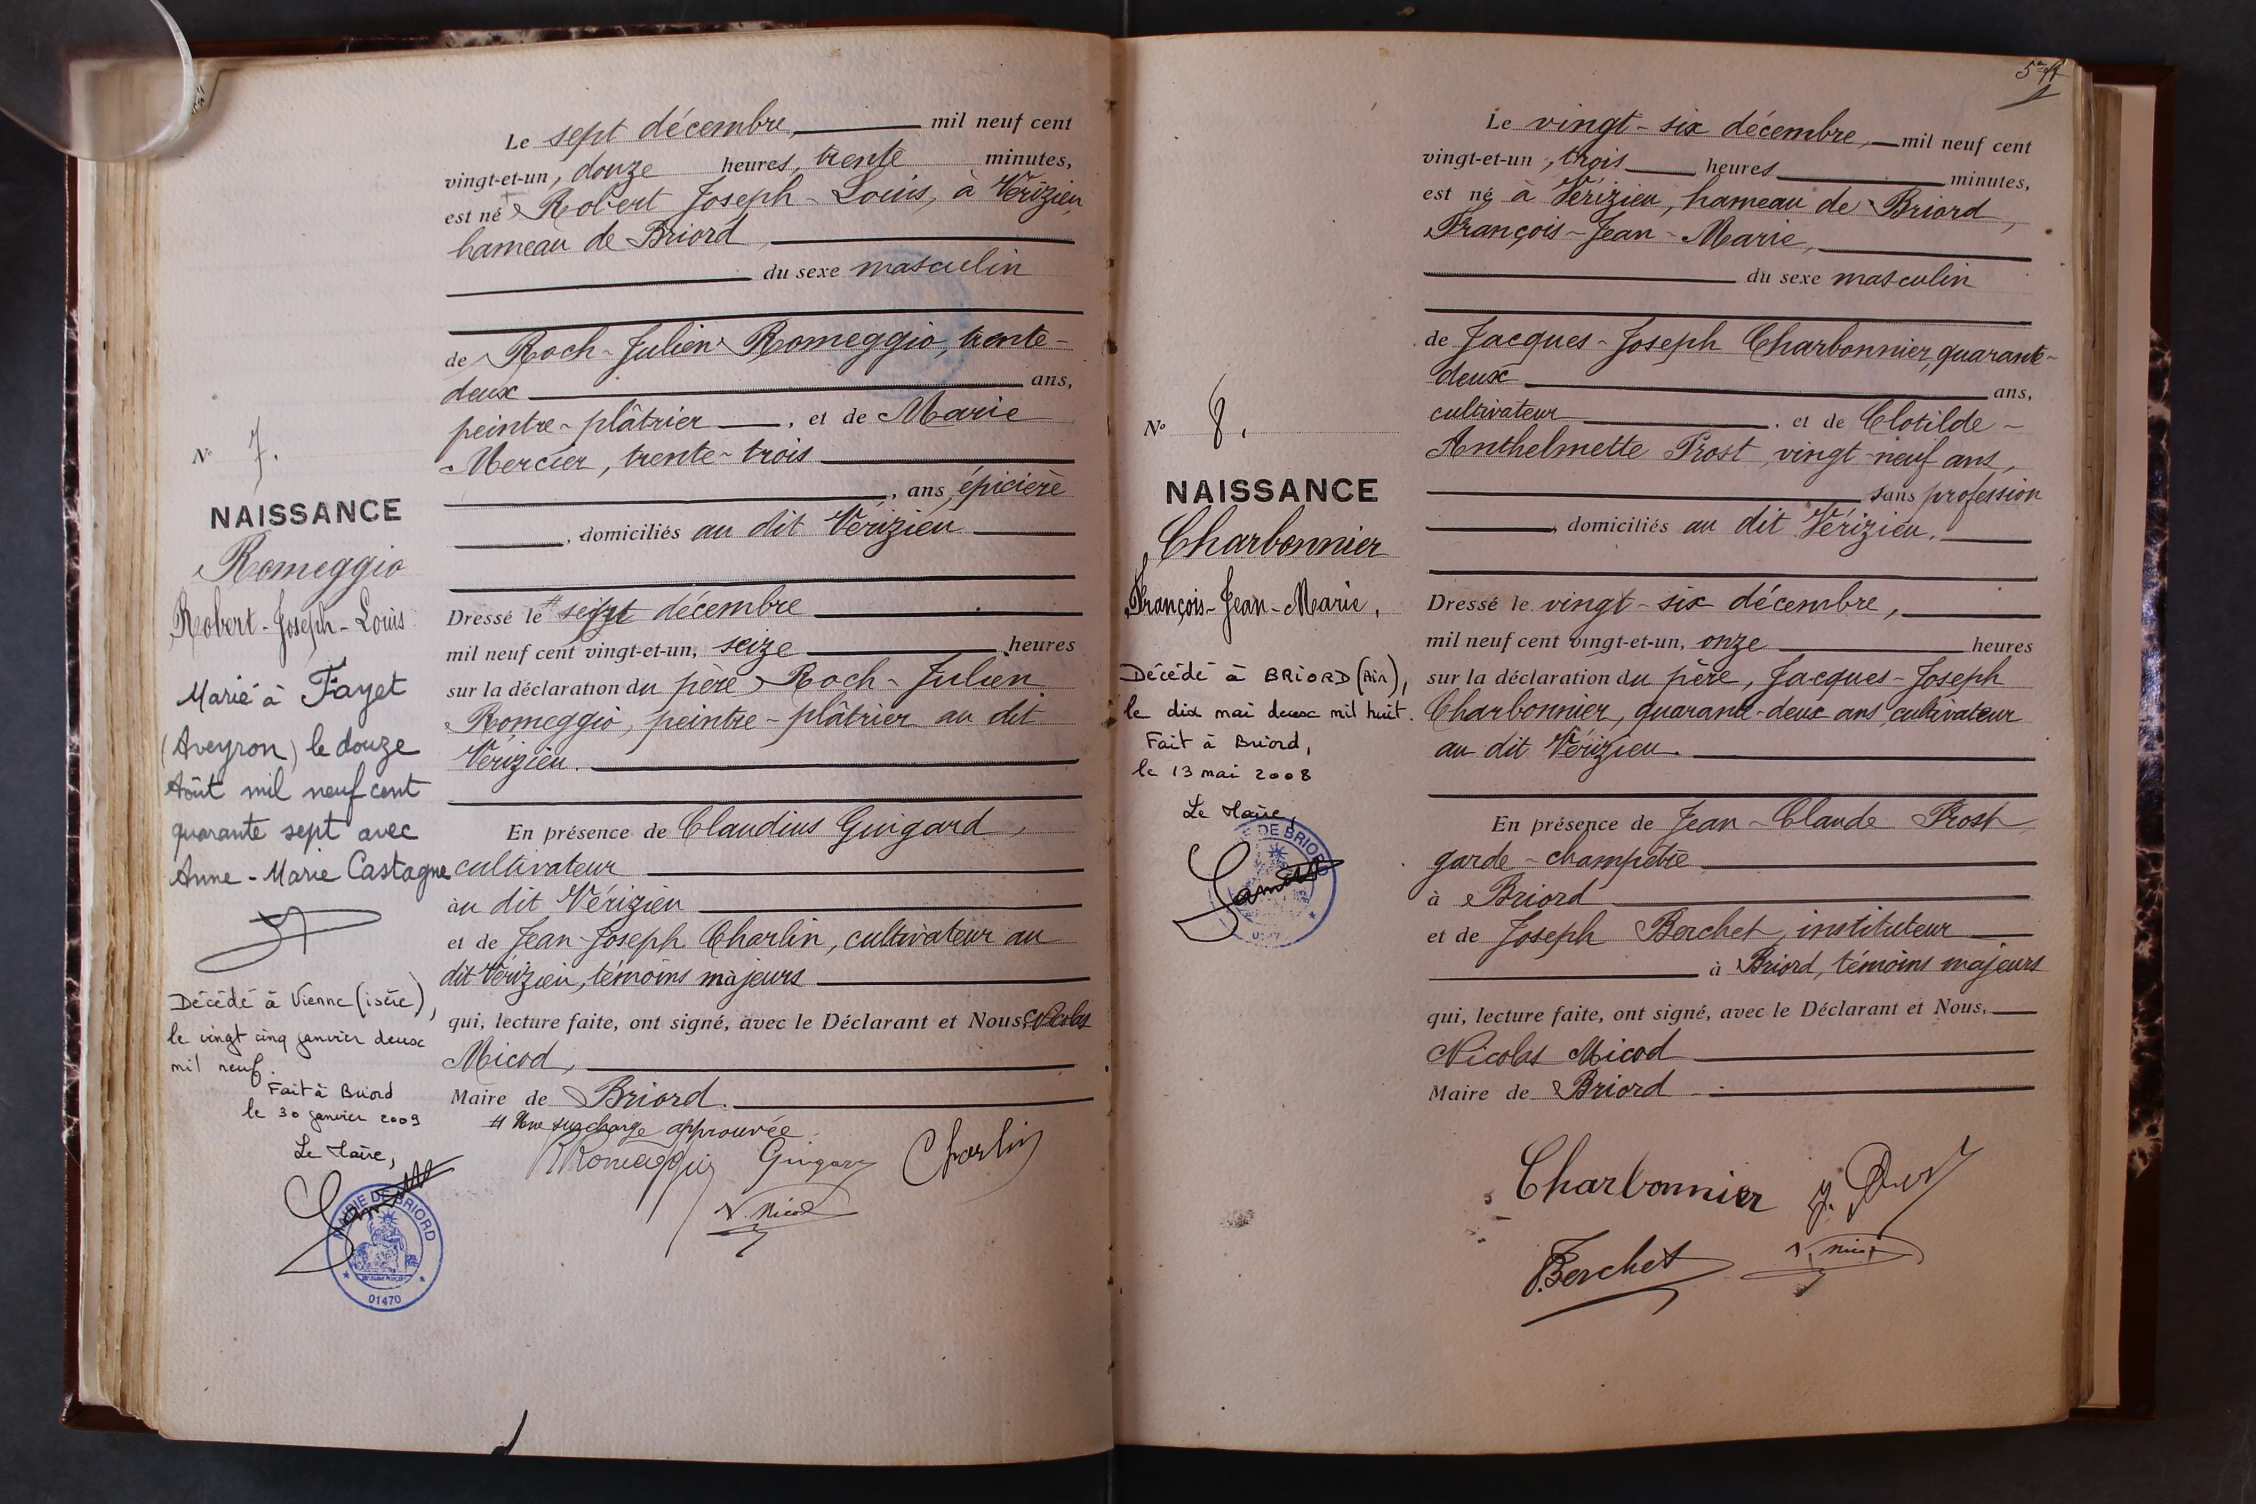 Le sept décembre, mil neuf cent
vingt-et-un, douze heures, trente minutes,
est né Robert Joseph-Louis, à Vérizieu,
hameau de Briord,
du sexe masculin
de Roch-Julien Romeggio, trente-
deux ans,
peintre-plâtrier, et de Marie
Mercier, trente-trois
, ans, épicière
, domiciliés au dit Vérizieu
Dressé le # sept décembre
mil neuf cent vingt-et-un, seize heures
sur la déclaration du père, Roch-Julien
Romeggio, peintre-plâtrier au dit
Vérizieu.
En présence de Claudius Guigard,
cultivateur
au dit Vérizieu
et de Jean-Joseph Charlin, cultivateur au
dit Vérizieu, témoins majeurs
qui, lecture faite, ont signé, avec le Déclarant et Nous, Nicolas
Micod,
Maire de Briord.
# Une surcharge approuvée
Romeggio Guigard Charlin
N. Micod
N° 7.
NAISSANCE
Romeggio
Robert-Joseph-Louis
Marié à Fayet
(Aveyron) le douze
Août mil neuf cent
quarante sept avec
Anne-Marie Castagne
Décédé à Vienne (isère),
le vingt cinq janvier deux
mil neuf.
Fait à Briord
le 30 janvier 2009
Le Maire,
MAIRIE DE BRIORD
01470
Le vingt-six décembre, mil neuf cent
vingt-et-un, trois heures minutes,
est né à Vérizieu, hameau de Briord,
François-Jean-Marie,
du sexe masculin
de Jacques-Joseph Charbonnier, quarante-
deux ans,
cultivateur, et de Clotilde-
Anthelmette Prost, vingt-neuf ans,
sans profession
, domiciliés au dit Vérizieu.
Dressé le vingt-six décembre,
mil neuf cent vingt-et-un, onze heures
sur la déclaration du père, Jacques-Joseph
Charbonnier, quarante-deux ans, cultivateur
au dit Vérizieu.
En présence de Jean-Claude Prost,
garde-champêtre
à Briord
et de Joseph Berchet, instituteur
à Briord, témoins majeurs
qui, lecture faite, ont signé, avec le Déclarant et Nous,
Nicolas Micod
Maire de Briord
Charbonnier
J. Berchet
N. Micod
N° 8.
NAISSANCE
Charbonnier
François-Jean-Marie.
Décédé à BRIORD (Ain),
le dix mai deux mil huit.
Fait à Briord,
le 13 mai 2008
Le Maire,
DE BRIORD